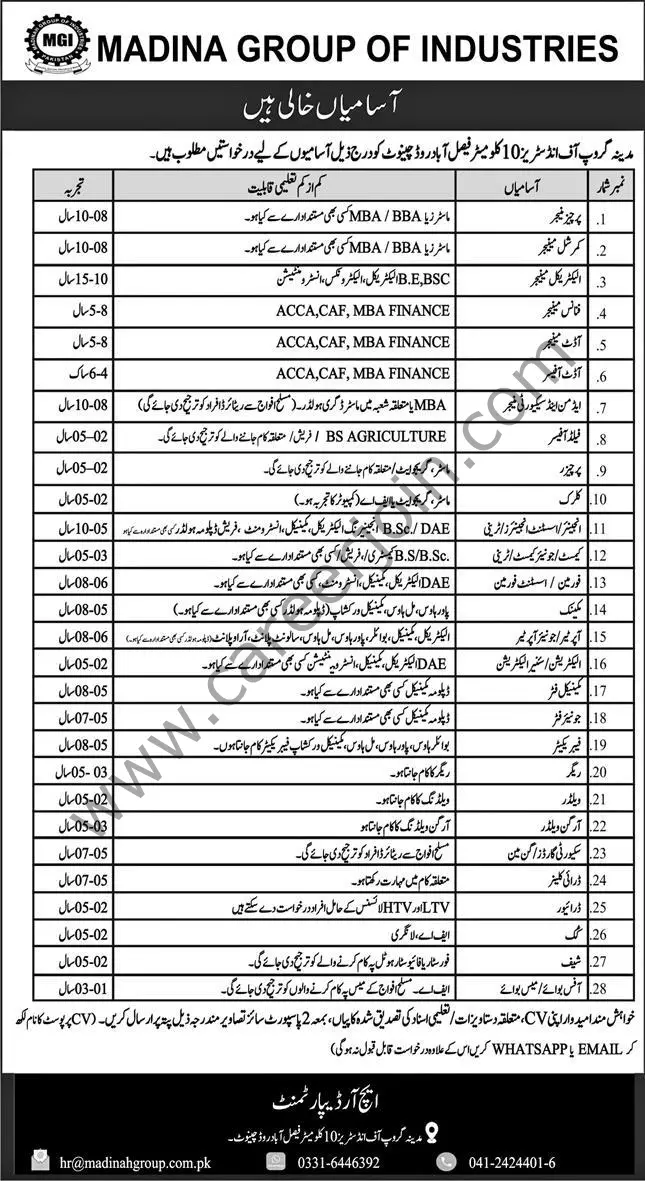 MGI
PAKISTAN
MADINA GROUP OF INDUSTRIES
آسامیاں خالی ہیں
مدینہ گروپ آف انڈسٹریز 10 کلومیٹر فیصل آباد روڈ چنیوٹ کو درج ذیل آسامیوں کے لیے درخواستیں مطلوب ہیں۔
نمبر شمار آسامیاں کم از کم تعلیمی قابلیت تجربہ
1. پرچیز منیجر ماسٹرز یا MBA / BBA کسی بھی مستند ادارے سے کیا ہو۔ 10-08 سال
2. کمرشل مینیجر ماسٹرز یا MBA / BBA کسی بھی مستند ادارے سے کیا ہو۔ 10-08 سال
3. الیکٹریکل مینیجر B.E,BSC الیکٹریکل، الیکٹرونکس، انسٹرومنٹیشن 15-10 سال
4. فنانس مینیجر ACCA,CAF, MBA FINANCE 5-8 سال
5. آڈٹ مینیجر ACCA,CAF, MBA FINANCE 5-8 سال
6. آڈٹ آفیسر ACCA,CAF, MBA FINANCE 6-4 ساک
7. ایڈمن اینڈ سیکیورٹی منیجر MBA یا متعلقہ شعبہ میں ماسٹر ڈگری ہولڈر۔ (مسلح افواج سے ریٹائرڈ افراد کو ترجیح دی جائے گی) 10-08 سال
8. فیلڈ آفیسر BS AGRICULTURE / فریش / متعلقہ کام جاننے والے کو ترجیح دی جائے گی۔ 05-02 سال
9. پرچیزر ماسٹر، گریجوایٹ / متعلقہ کام جاننے والے کو ترجیح دی جائے گی۔ 05-02 سال
10. کلرک ماسٹر، گریجوایٹ یا ایف اے (کمپیوٹر کا تجربہ ہو۔) 05-02 سال
11. انجینئر / اسسٹنٹ انجینئرز / ٹرینی B.Sc. / DAE انجینئرنگ الیکٹریکل، مکینیکل، انسٹرومنٹ، فریش ڈپلومہ ہولڈر کسی بھی مستند ادارہ سے کیا ہو 10-05 سال
12. کیمسٹ / جونیئر کیمسٹ / ٹرینی B.S/B.Sc. کیمسٹری / فریش / کسی بھی مستند ادارے سے کیا ہو۔ 05-03 سال
13. فورمین / اسسٹنٹ فورمین DAE الیکٹریکل، مکینیکل، انسٹرومنٹ، کسی بھی مستند ادارے سے کیا ہو۔ 08-06 سال
14. مکینک پاور ہاوس، مل ہاوس، مکینیکل ورکشاپ (ڈپلومہ ہولڈر کسی بھی مستند ادارے سے کیا ہو) 08-05 سال
15. آپریٹر / جونیئر آپریٹر الیکٹریکل، مکینیکل، بوائلر، پاور ہاوس، مل ہاوس، سالونٹ پلانٹ، آر او پلانٹ (ڈپلومہ ہولڈر کسی بھی مستند ادارہ سے کیا ہو) 08-06 سال
16. الیکٹریشن / سنئیر الیکٹریشن DAE الیکٹریکل، مکینیکل، انسٹرومنٹیشن کسی بھی مستند ادارے سے کیا ہو۔ 05-02 سال
17. مکینیکل فٹر ڈپلومہ مکینیکل کسی بھی مستند ادارے سے کیا ہو۔ 08-05 سال
18. جونیئر فٹر ڈپلومہ مکینیکل کسی بھی مستند ادارے سے کیا ہو۔ 07-05 سال
19. فیبریکیٹر بوائلر ہاوس، پاور ہاوس، مل ہاوس، مکینیکل ورکشاپ فیبریکیٹر کام جانتا ہوں۔ 08-05 سال
20. ریگر ریگر کا کام جانتا ہو۔ 05- 03 سال
21. ویلڈر ویلڈنگ کا کام جانتا ہو۔ 05-02 سال
22. آرگن ویلڈر آرگن ویلڈنگ کا کام جانتا ہو 05-03 سال
23. سکیورٹی گارڈز / گن مین مسلح افواج سے ریٹائرڈ افراد کو ترجیح دی جائے گی۔ 07-05 سال
24. ڈرائی کلینر متعلقہ کام میں مہارت رکھتا ہو۔ 07-05 سال
25. ڈرائیور LTV اور HTV لائسنس کے حامل افراد درخواست دے سکتے ہیں 05-02 سال
26. کُک ایف اے، لانگری 05-02 سال
27. شیف فور سٹار یا فائیو سٹار ہوٹل پہ کام کرنے والے کو ترجیح دی جائے گی۔ 05-02 سال
28. آفس بوائے / میس بوائے ایف اے۔ مسلح افواج کے میس پہ کام کرنے والوں کو ترجیح دی جائے گی۔ 03-01 سال
خواہش مند امیدوار اپنی CV، متعلقہ دستاویزات / تعلیمی اسناد کی تصدیق شدہ کاپیاں، بمعہ 2 پاسپورٹ سائز تصاویر مندرجہ ذیل پتہ پر ارسال کریں۔ (CV پر پوسٹ کا نام لکھ
کر EMAIL یا WHATSAPP کریں اس کے علاوہ درخواست قابل قبول نہ ہوگی)
ایچ آر ڈیپارٹمنٹ
مدینہ گروپ آف انڈسٹریز 10 کلومیٹر فیصل آباد روڈ چنیوٹ۔
hr@madinahgroup.com.pk 0331-6446392 041-2424401-6
www.careerjoin.com